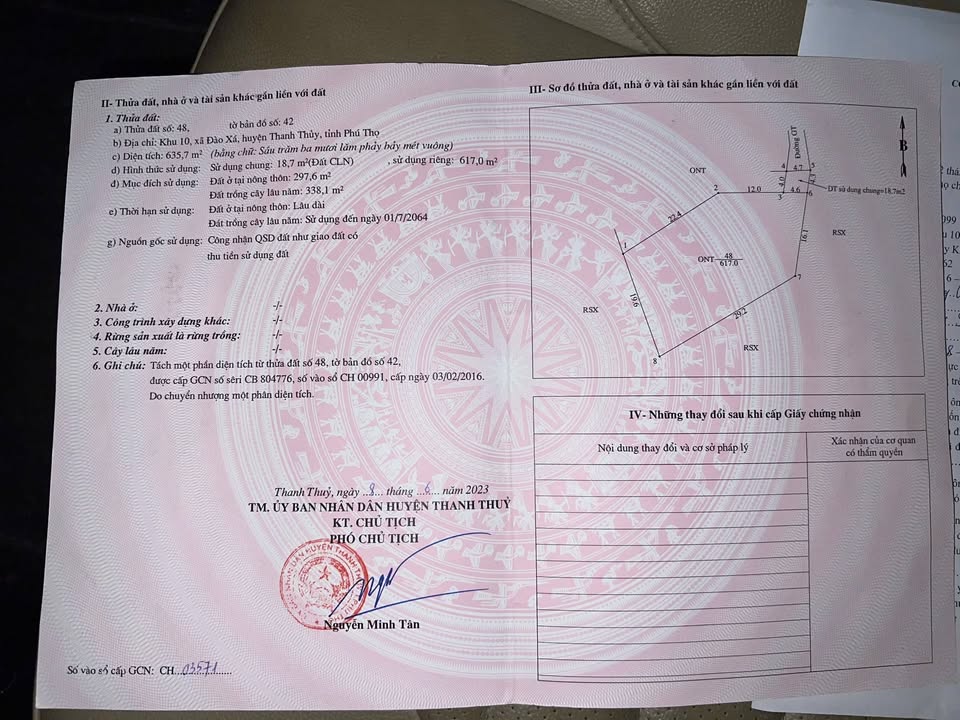 II- Thửa đất, nhà ở và tài sản khác gắn liền với đất
1. Thửa đất:
a) Thửa đất số: 48, tờ bản đồ số: 42
b) Địa chỉ: Khu 10, xã Đào Xá, huyện Thanh Thủy, tỉnh Phú Thọ
c) Diện tích: 635,7 m² (bằng chữ: Sáu trăm ba mươi lăm phảy bảy mét vuông)
d) Hình thức sử dụng: Sử dụng chung: 18,7 m²(Đất CLN) , sử dụng riêng: 617,0 m²
đ) Mục đích sử dụng: Đất ở tại nông thôn: 297,6 m²
Đất trồng cây lâu năm: 338,1 m²
e) Thời hạn sử dụng: Đất ở tại nông thôn: Lâu dài
Đất trồng cây lâu năm: Sử dụng đến ngày 01/7/2064
g) Nguồn gốc sử dụng: Công nhận QSD đất như giao đất có
thu tiền sử dụng đất
2. Nhà ở: -/-
3. Công trình xây dựng khác: -/-
4. Rừng sản xuất là rừng trồng: -/-
5. Cây lâu năm: -/-
6. Ghi chú: Tách một phần diện tích từ thửa đất số 48, tờ bản đồ số 42,
được cấp GCN số sêri CB 804776, số vào sổ CH 00991, cấp ngày 03/02/2016.
Do chuyển nhượng một phần diện tích.
Thanh Thuỷ, ngày ..8... tháng ...6.... năm 2023
TM. ỦY BAN NHÂN DÂN HUYỆN THANH THUỶ
KT. CHỦ TỊCH
PHÓ CHỦ TỊCH
Nguyễn Minh Tân
Số vào sổ cấp GCN: CH...03571.......
III- Sơ đồ thửa đất, nhà ở và tài sản khác gắn liền với đất
B
Đường GT
ONT
4 4.7 5
4.0 4.3
2 12.0 3 4.6 6
DT sử dụng chung=18,7m2
22.4
16.1
RSX
1
ONT 48
617.0
7
19.6
RSX
29.2
RSX
8
IV- Những thay đổi sau khi cấp Giấy chứng nhận
Nội dung thay đổi và cơ sở pháp lý
Xác nhận của cơ quan
có thẩm quyền